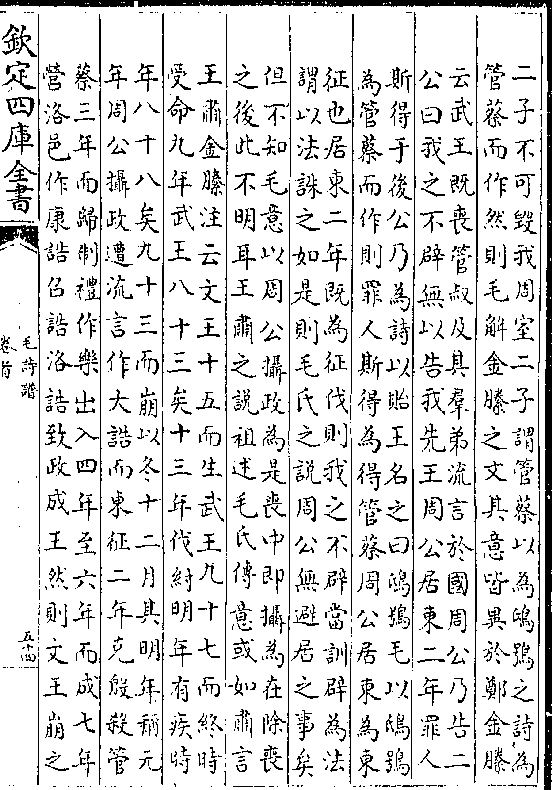 二子不可毀我周室二子謂管蔡以為鴟鴞之詩為
管蔡而作然則毛解金縢之文其意皆異於鄭金縢
云武王既喪管叔及其羣弟流言於國周公乃告二
公曰我之不辟無以告我先王周公居東二年罪人
斯得于後公乃為詩以貽王名之曰鴟鴞毛以鴟鴞
為管蔡而作則罪人斯得為得管蔡周公居東為東
征也居東二年既為征伐則我之不辟當訓辟為法
謂以法誅之如是則毛氏之説周公無避居之事矣
但不知毛意以周公攝政為是喪中即攝為在除喪
之後此不明耳王肅之説祖述毛氏傳意或如肅言
王肅金縢注云文王十五而生武王九十七而終時
受命九年武王八十三矣十三年伐紂明年有疾時
年八十八矣九十三而崩以冬十二月其明年稱元
年周公攝政遭流言作大誥而東征二年克殷殺管
蔡三年而歸制禮作樂出入四年至六年而成七年
營洛邑作康誥召誥洛誥致政成王然則文王崩之
欽定四庫全書
毛詩譜
卷首
五十四